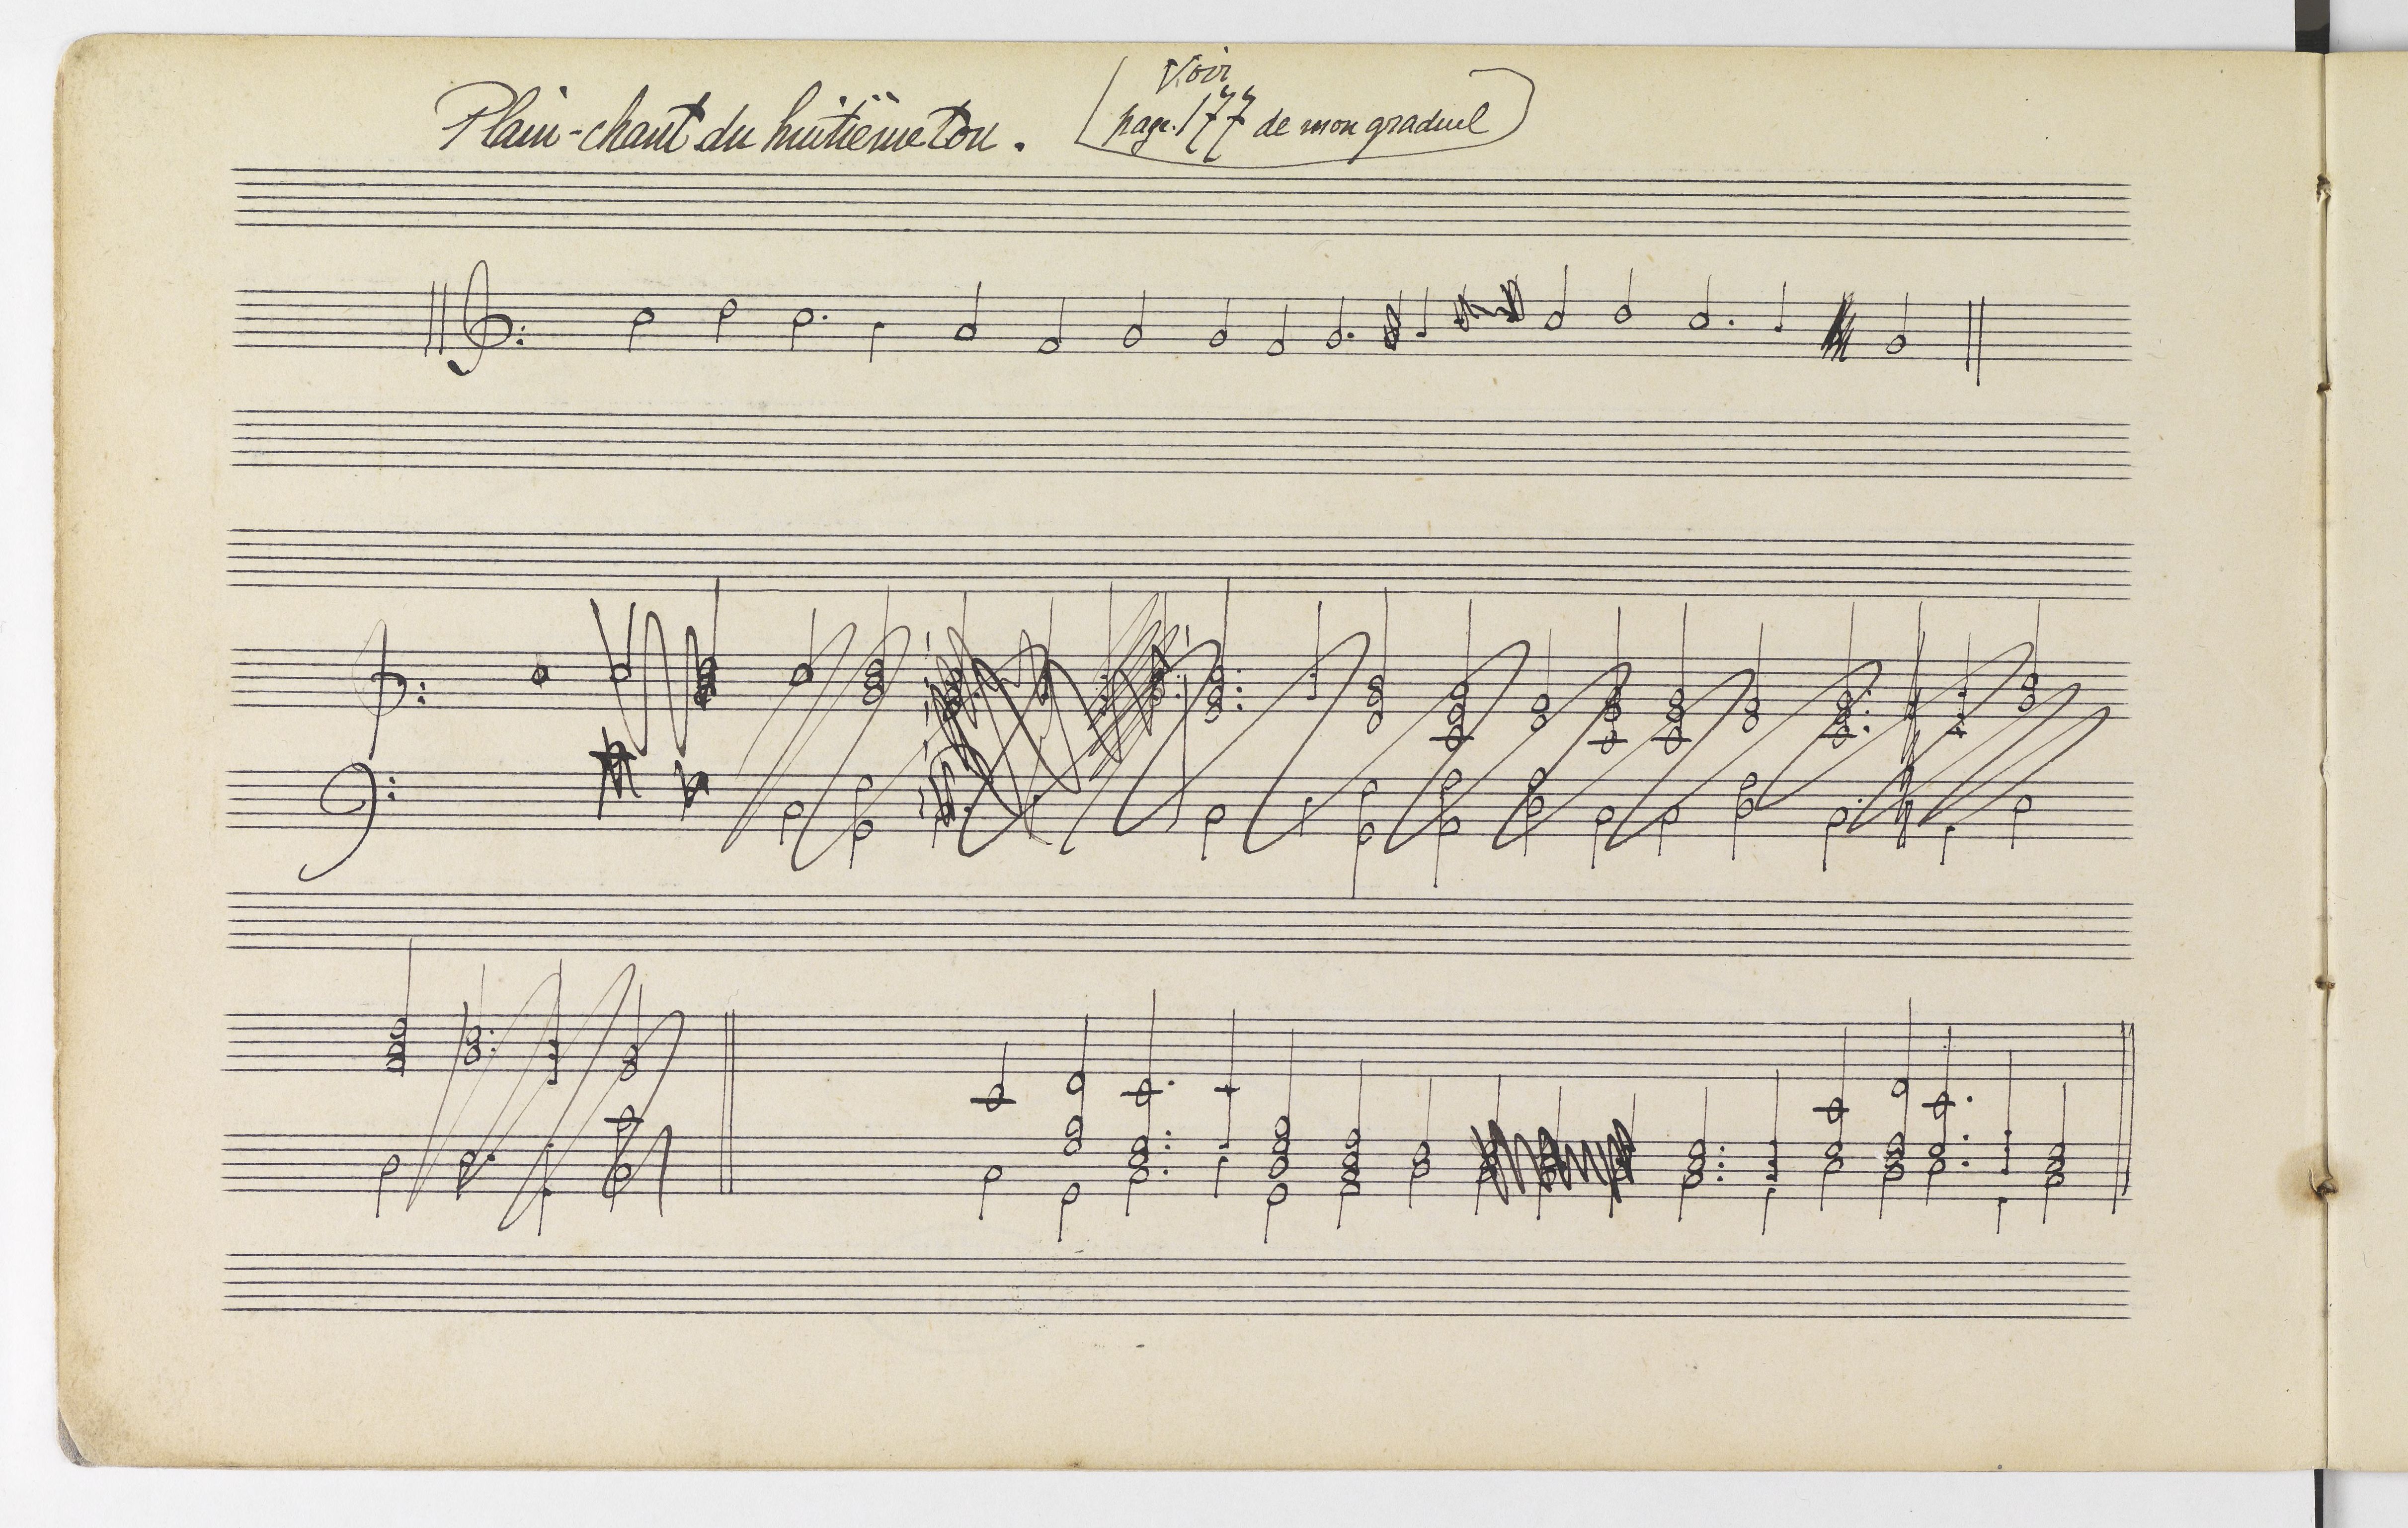 Plain-chant du huitième ton.
Voir
page 177 de mon graduel